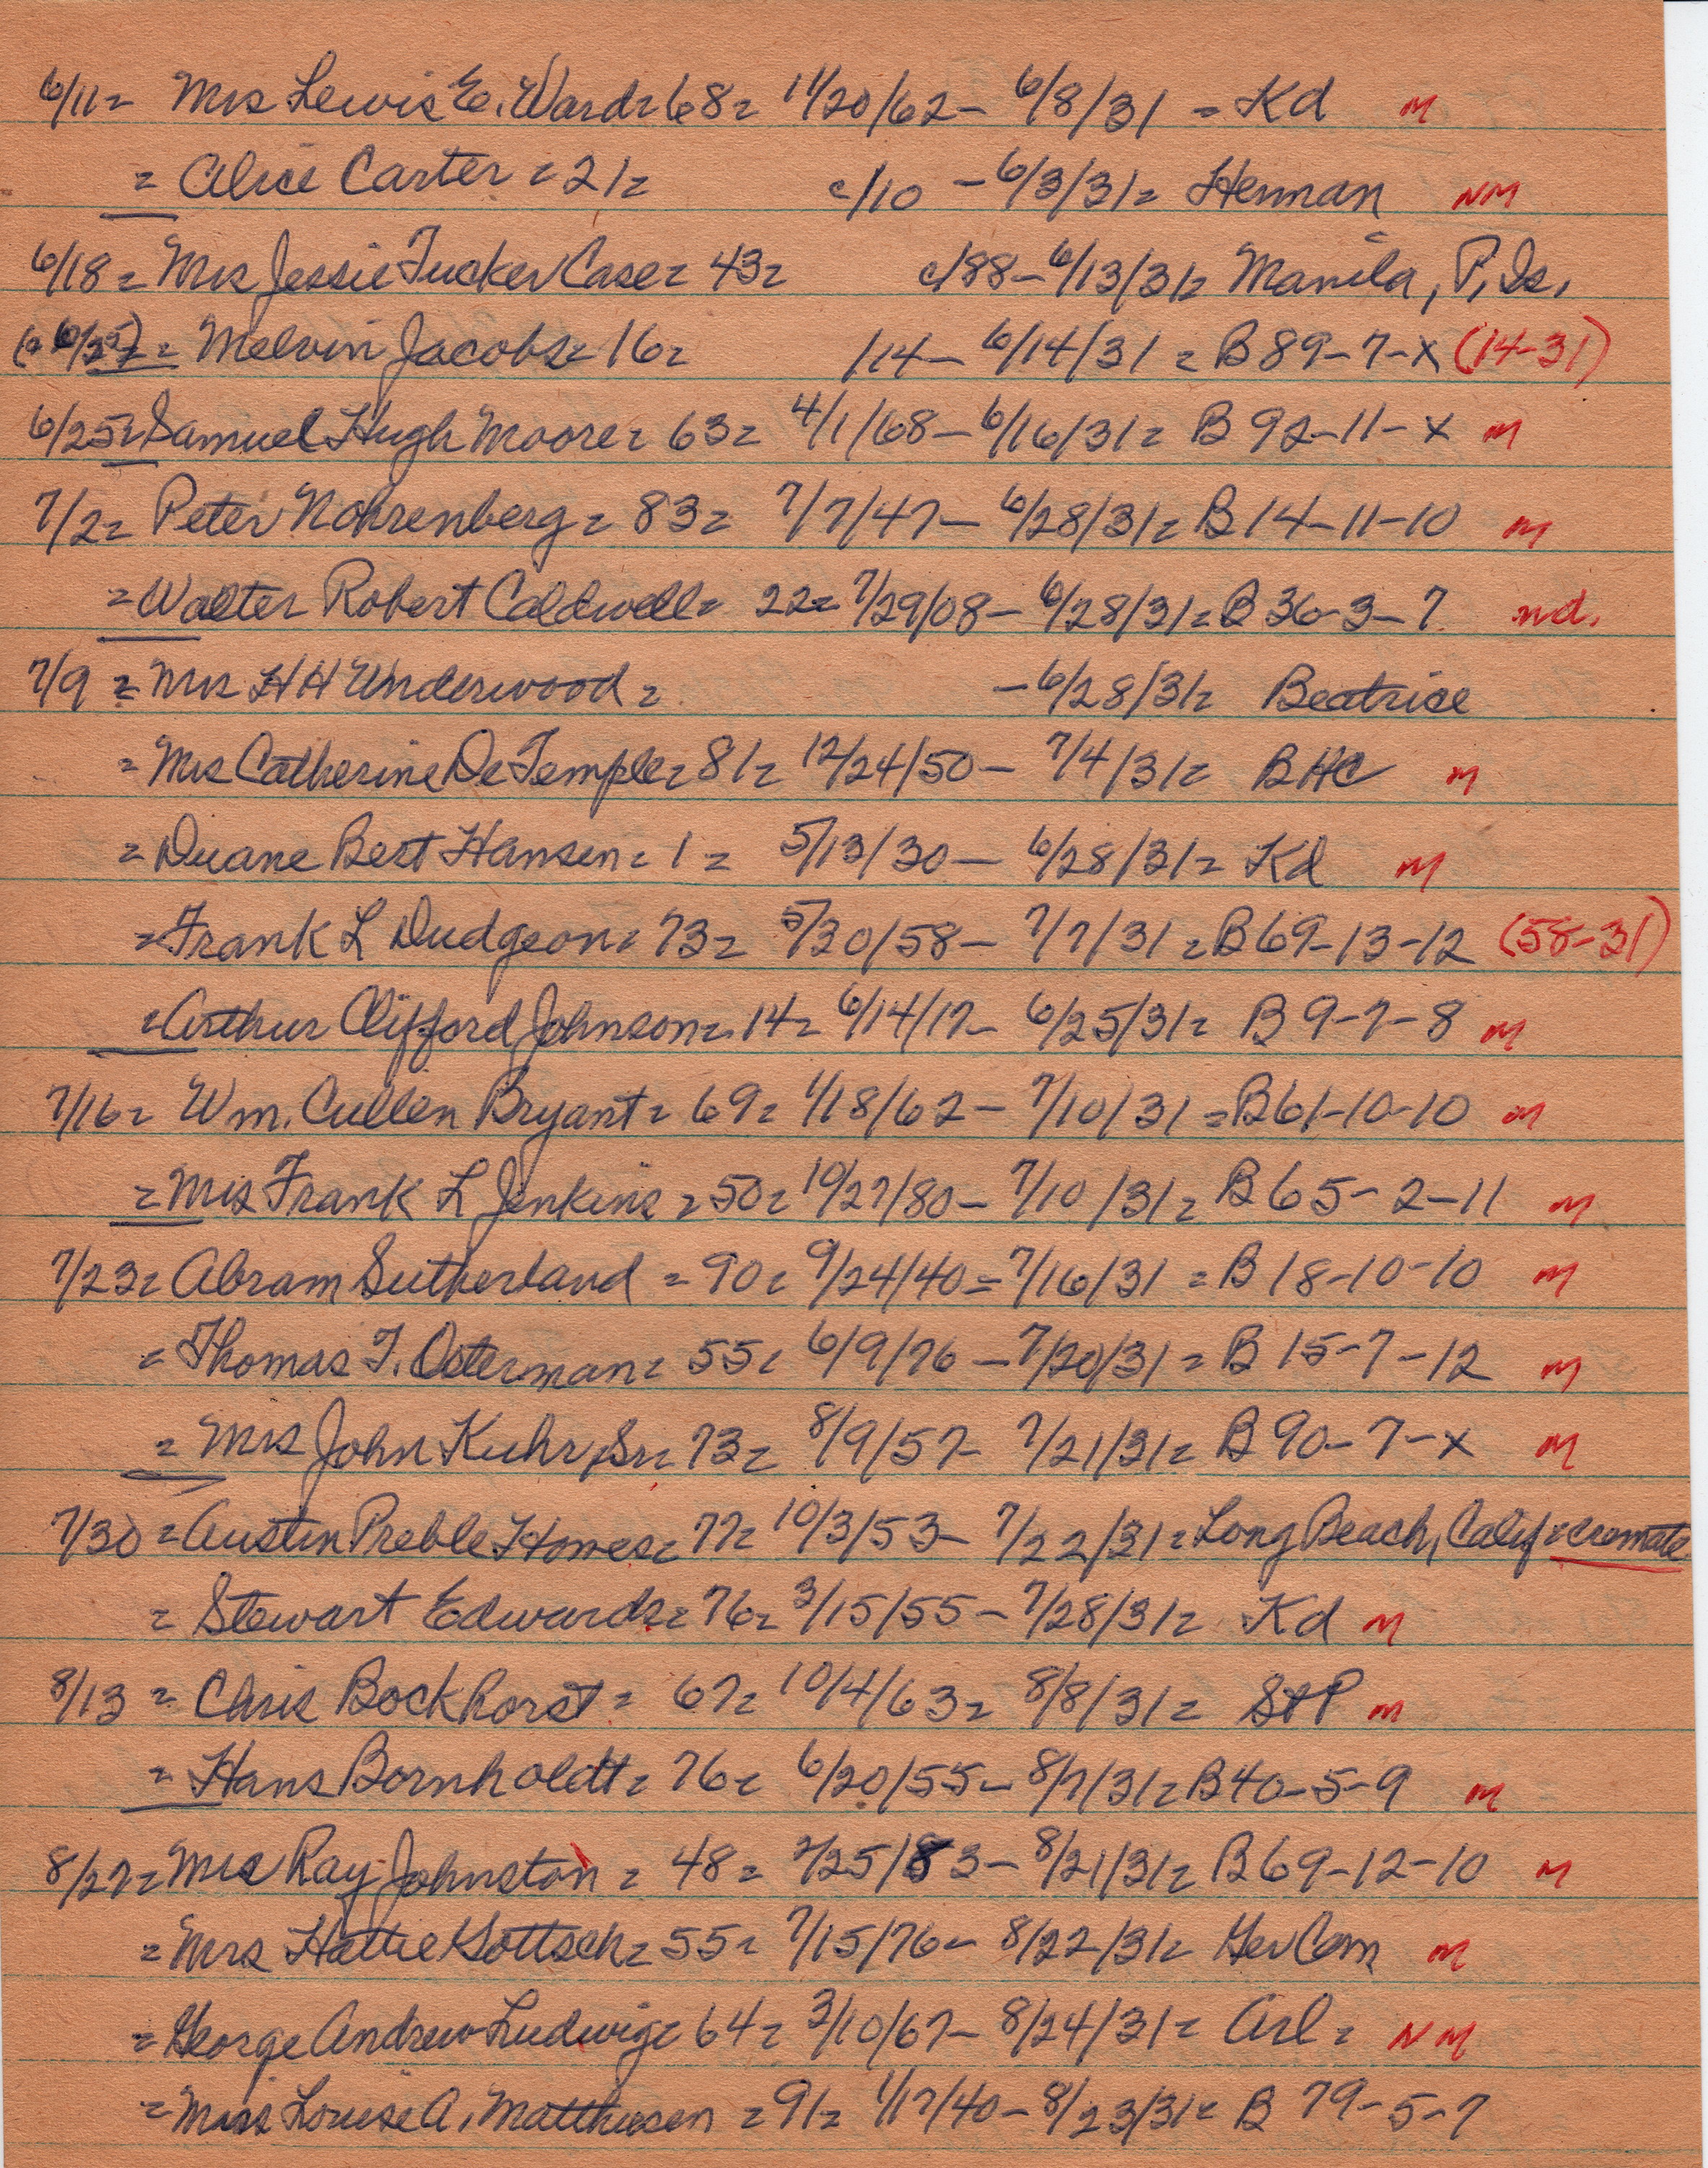 6/11 = Mrs Lewis E. Ward = 68 = 11/20/62 – 6/8/31 = Kd M
= Alice Carter = 21 = c/10 – 6/3/31 = Herman NM
6/18 = Mrs Jessie Tucker Case = 43 = c/88 – 6/13/31 = Manila, P, Is,
= Melvin Jacobs = 16 = /14 – 6/14/31 = B 89-7-x (14-31)
6/25 = Samuel Hugh Moore = 63 = 4/1/68 – 6/16/31 = B 92-11-x M
7/2 = Peter Nohrenberg = 83 = 7/7/47 – 6/28/31 = B 14-11-10 M
= Walter Robert Caldwell = 22 = 7/29/08 – 6/28/31 = B 36-3-7 nd.
7/9 = Mrs H H Underwood = – 6/28/31 = Beatrice
= Mrs Catherine DeTemple = 81 = 12/24/50 – 7/4/31 = BHC M
= Duane Best Hansen = 1 = 5/13/30 – 6/28/31 = Kd M
= Frank L Dudgeon = 73 = 5/30/58 – 7/7/31 = B 69-13-12 (58-31)
= Arthur Clifford Johnson = 14 = 6/14/17 – 6/25/31 = B 9-7-8 M
7/16 = Wm. Cullen Bryant = 69 = 1/18/62 – 7/10/31 = B 61-10-10 M
= Mrs Frank L Jenkins = 50 = 10/27/80 – 7/10/31 = B 65-2-11 M
7/23 = Abram Sutherland = 90 = 9/24/40 = 7/16/31 = B 18-10-10 M
= Thomas T. Osterman = 55 = 6/9/76 – 7/20/31 = B 15-7-12 M
= Mrs John Kuhr, Sr = 73 = 8/9/57 – 7/21/31 = B 90-7-x M
7/30 = Austin Preble Howes = 77 = 10/3/53 – 7/22/31 = Long Beach, Calif = cremate
= Stewart Edwards = 76 = 3/15/55 – 7/28/31 = Kd M
8/13 = Chris Bockhorst = 67 = 10/4/63 = 8/8/31 = StP M
= Hans Bornholdt = 76 = 6/20/55 – 8/7/31 = B 40-5-9 M
8/27 = Mrs Ray Johnston = 48 = 2/25/83 – 8/21/31 = B 69-12-10 M
= Mrs Hattie Gottsch = 55 = 7/15/76 – 8/22/31 = Ger Cem M
= George Andrew Ludwig = 64 = 3/10/67 – 8/24/31 = Arl = NM
= Miss Louise A. Matthiesen = 91 = 1/17/40 – 8/23/31 = B 79-5-7